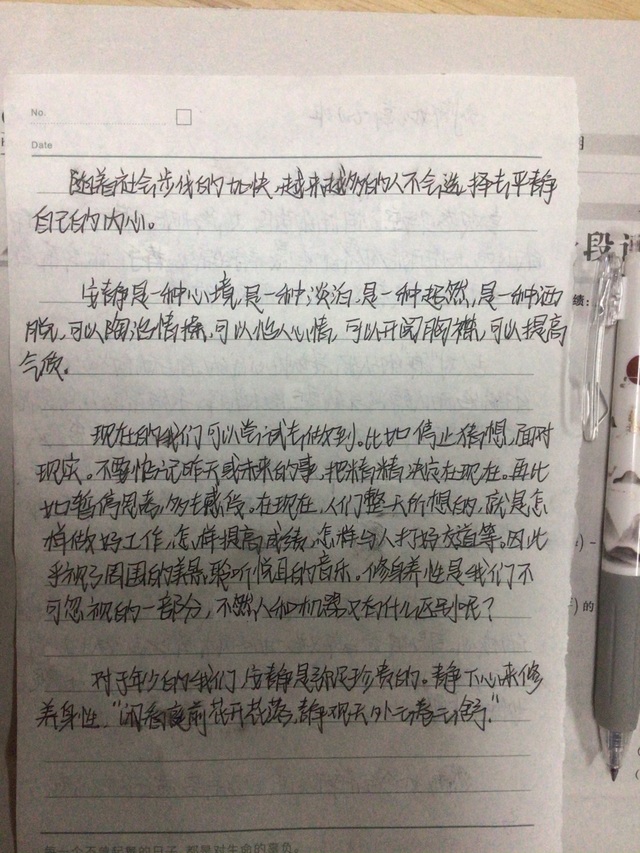 No.
Date
随着社会步伐的加快,越来越多的人不会选择去平静
自己的内心。
安静是一种心境,是一种淡泊,是一种超然,是一种洒
脱,可以陶冶情操,可以愉人心情,可以开阔胸襟,可以提高
气质。
现在的我们可以尝试去做到。比如停止猜想,面对
现实。不要惦记昨天或未来的事,把精精决定在现在。再比
如暂停思考,多去感受。在现在,人们整天所想的,就是怎
样做好工作,怎样提高成绩,怎样与人打好交道等。因此
乎视了周围的美景,聆听悦耳的音乐。修身养性是我们不
可忽视的一部分,不然人和机器又有什么区别呢?
对于年少的我们,安静是弥足珍贵的。静下心来修
养身性,“闲看庭前花开花落,静观天外云卷云舒”
段
绩:
的
每一个不曾起舞的日子,都是对生命的辜负。